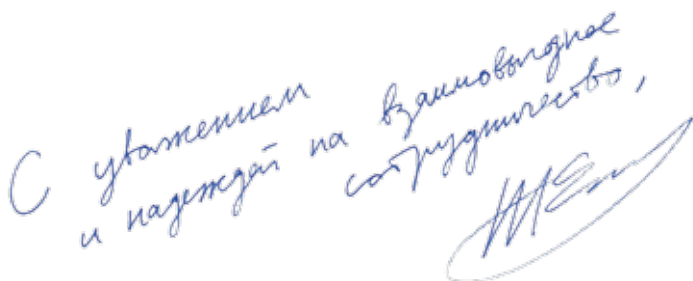 С уважением
и надеждой на взаимовыгодное
сотрудничество,